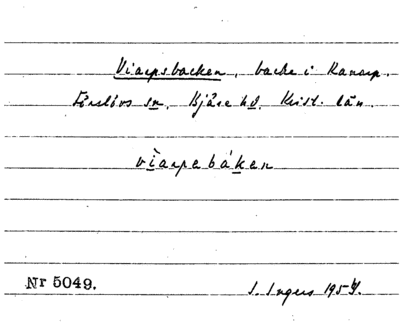 Viarpsbacken, backe i Ranarp.
Förslövs sn, Bjäre hd, Krist. län.
vìarpebáken
Nr 5049. I. Ingers 1954.